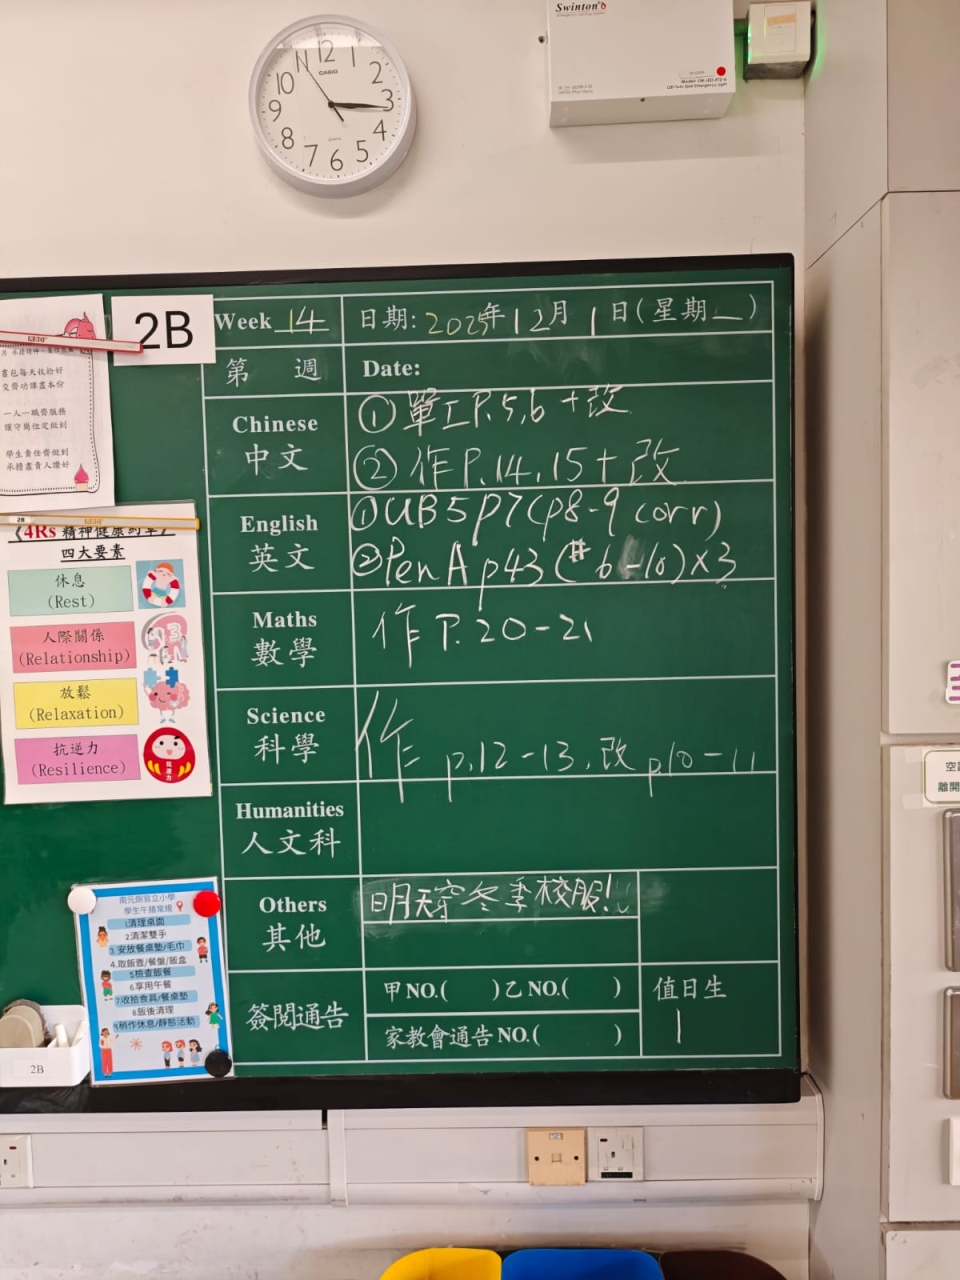 Swinton
Emergency Lighting System
N 12 1 2 3 4 5 6 7 8 9 10
CASIO
QUARTZ
書包每天收拾好
交齊功課盡本份
一人一職齊服務
謹守崗位定做到
學生責任齊做到
承擔盡責人讚好
2B
Week 14
日期: 2025年12月1日(星期一)
第 週
Date:
Chinese
中文
①單工P.5,6+改
②作P.14,15+改
English
英文
①UB5 p7 (p8-9 corr)
②Pen A p43 (#6-10)×3
Maths
數學
作P.20-21
Science
科學
作 p.12-13,改 p.10-11
Humanities
人文科
Others
其他
明天穿冬季校服!
簽閱通告
甲NO.( )乙NO.( )
家教會通告NO.( )
值日生
1
2B
《4Rs 精神健康約章》
四大要素
休息
(Rest)
人際關係
(Relationship)
放鬆
(Relaxation)
抗逆力
(Resilience)
南元朗官立小學
學生午膳常規
1清理桌面
2.清潔雙手
3.安放餐桌墊/毛巾
4.取飯壺/餐盤/飯盒
5檢查飯餐
6.享用午餐
7收拾食具/餐桌墊
8飯後清理
9稍作休息/靜態活動
2B
空調
離開